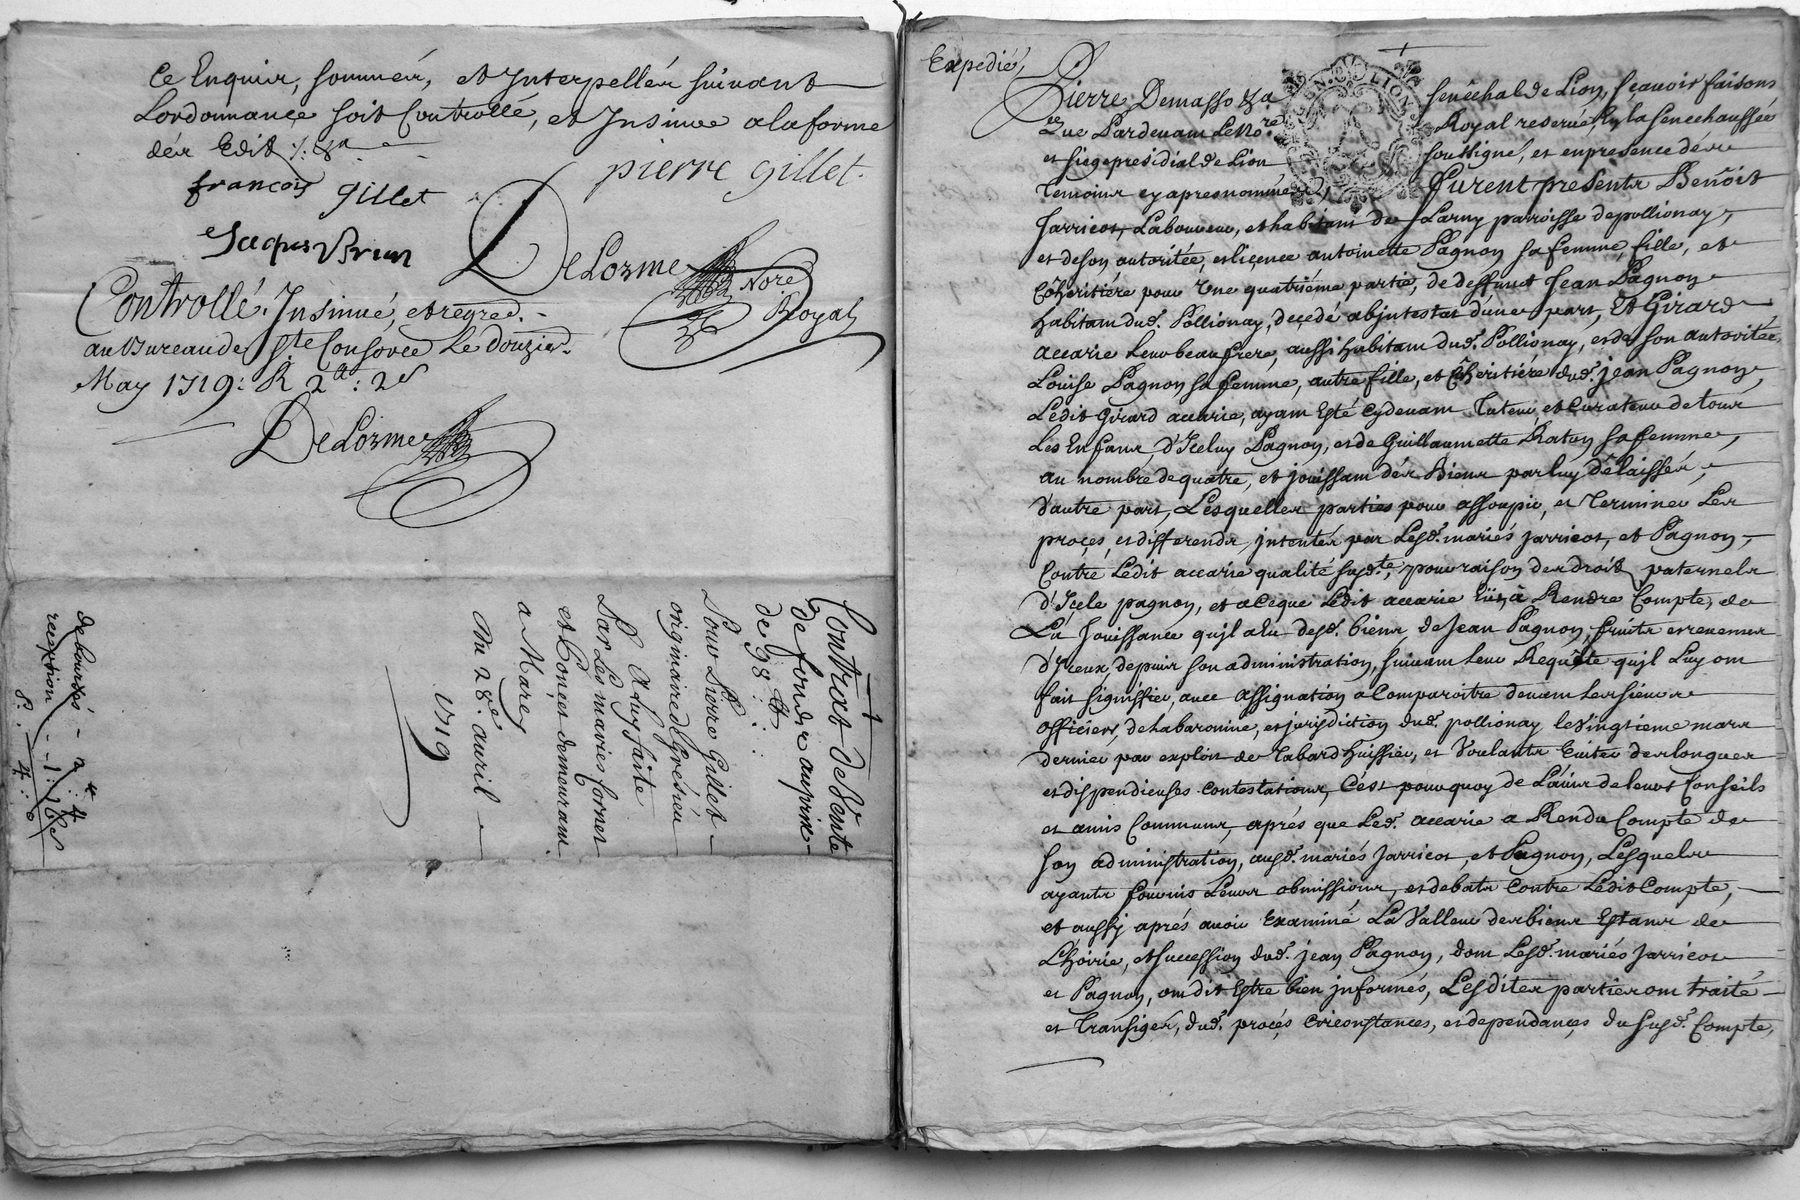 Ce Enquir, sommér, et Interpellér suivant
Lordonnance soit Controllé, et Insinué alaforme
dér Edit
pierre gillet
françois gillet
Jacques Brun
DeLorme Nore Royal
Controllé, Insinué, et regred.
au Bureau de Ste Consorce Le douzier.
May 1719: R 2tt: 2s
DeLorme
Contract de Vente
de fondz au prix
de 98 tt
Pour Pierre Gillet
originaire d'Grésieu
A luy faite
Par Les mariés fornet
et Ponçet demeurant
a Marcy
Du 28e. avril
1719
debourses - 2tt: 4
reception - 1: 16s
Expedié,
GEN. DE LION
Pierre Demasso &a senechal de Lion, scavoir faisons
que Pardevant Le Nore Royal reservé En la senechaussée
et siege presidial de Lion soussigné, et en presence dér
temoinr cy apres nommér, furent presentr Benoit
Jarricot, Laboureur, et habitant de Larny parroisse depollionay,
et deson autoritée, et liçence antoinette Pagnon sa femme, fille, et
Cohéritiére pour Une quatriéme partie, de deffunct Jean Pagnon
habitant dud. Pollionay, deçedé abjntestat d'une part, Et Girard
accarie leur beaufrere, aussi habitant dud. Pollionay, et de son autoritée,
Louise Pagnon sa femme, autre fille, et Cohéritiére dud. jean Pagnon,
Ledit Girard accarie, ayant Esté Cydevant Tuteur et Curateur de tour
Les Enfanr, d'Iceluy Pagnon, et de Guillaumette Raton sa femme,
au nombre de quatre, et joüissant dér Bienr par luy délaissér,
d'autre part, Lesqueller parties pour assoupir, et Terminer Ler
proçes, et differendr, jntentér par Lesd. mariés jarricot, et Pagnon,
Contre Ledit accarie qualité susdte, pour raison der droitz paternelr
d'Içele pagnon, et a Ceque Ledit accarie Eüt, à Rendre Compte, de
La Jouissance qu'jl a Eu desd. bienr, de Jean Pagnon, fruitr et revenur
d'Iceux, depuir son administration, suivant leur Requête qu'jl Luy ont
fait signiffier, avec assignation a Comparoitre devant Ler sieurr
officierr, de la baronnie, et jurisdiction dud. pollionay le vingtieme marr
dernier par exploit de Tabard huissier, et Voulantr Eviter der longuer
et dispendieuses contestationr, C'est pourquoy de L'avir de leurs Conseils
et amis Communr, aprés que Led. accarie a Rendu Compte de
son administration, ausd. mariés Jarricot, et Pagnon, Lesquelr
ayantr fournis Leurr obmissionr, et debatr Contre Ledit Compte,
et aussy aprés avoir Examiné La Valleur der bienr Estanr de
L'hoirie, et succession dud. jean Pagnon, dont Lesd. mariés Jarricot
et Pagnon, ont dit Estre bien jnformés, Lesditer partier ont traité
et Transigér, dud. proçés Circonstances, et dependançes du susd. Compte,